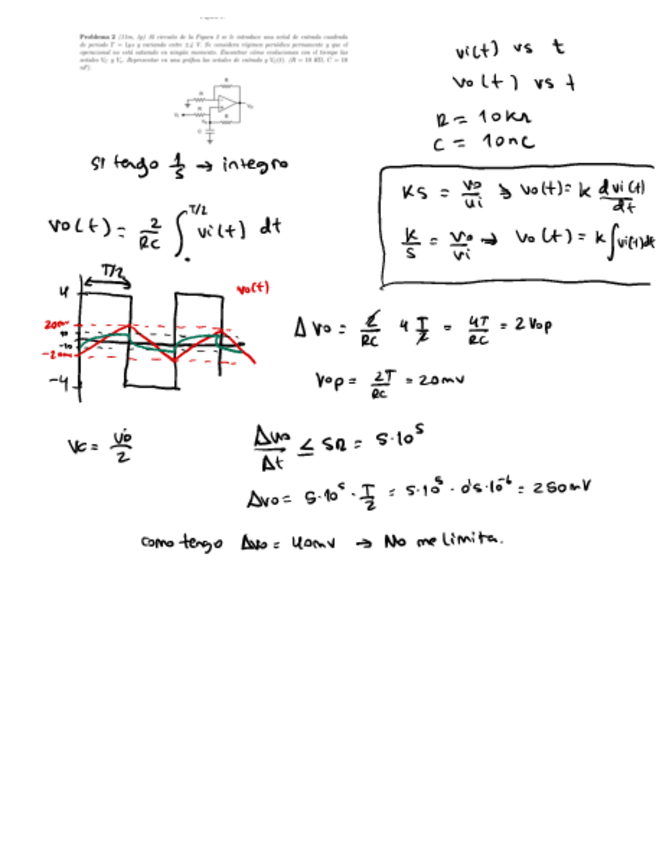 Problema 2 (15m, 3p) Al circuito de la Figura 2 se le introduce una señal de entrada cuadrada
de periodo T = 1µs y variando entre ±4 V. Se considera régimen periódico permanente y que el
operacional no está saturado en ningún momento. Encontrar cómo evolucionan con el tiempo las
señales V_C y V_o. Representar en una gráfica las señales de entrada y V_O(t). (R = 10 KΩ, C = 10
nF).
vi(t) vs t
vo(t) vs t
R = 10kΩ
C = 10nC
Si tengo 1/s → integro
KS = vo/vi → vo(t) = K dvi(t)/dt
K/s = vo/vi → vo(t) = K ∫vi(t)dt
vo(t) = 2/RC ∫ T/2 vi(t) dt
T/2
vo(t)
4
20mv
10
-10
-20mv
-4
Δvo = 2/RC 4 T/2 = 4T/RC = 2Vop
Vop = 2T/RC = 20mV
Vc = vo/2
Δvo/Δt ≤ SR = 5·10^5
Δvo = 5·10^5 · T/2 = 5·10^5 · 0'5·10^-6 = 250mV
como tengo Δvo = 40mV → No me limita.